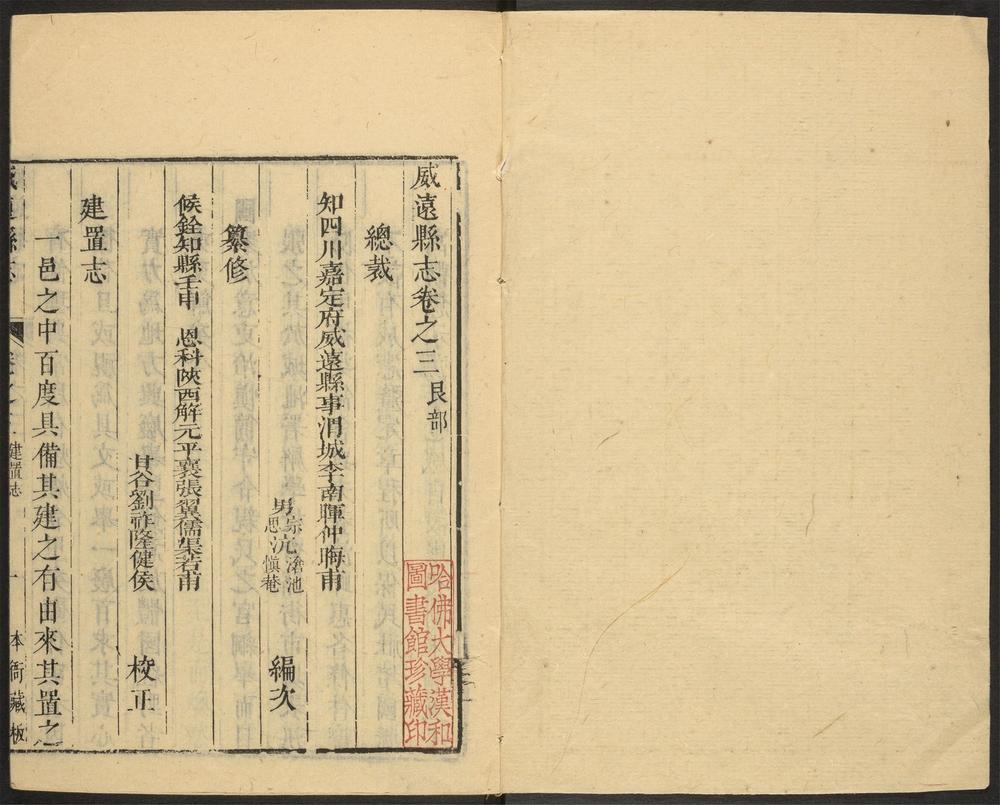 威遠縣志卷之三 艮部
總裁
知四川嘉定府威遠縣事渭城李南暉仲晦甫
男宗沆滄池
思沆愼菴
編次
纂修
候銓知縣壬申 恩科陝西解元平襄張翼儒集若甫
甘谷劉祚隆健侯 校正
建置志
一邑之中百度具備其建之有由來其置之
威遠縣志
卷之三
建置志
一
本衙藏板
哈佛大學漢和
圖書館珍藏印